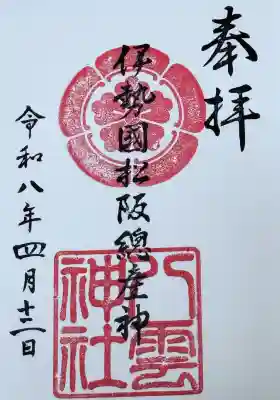 奉拝
伊勢國松阪總産神
八雲神社
令和八年四月十二日